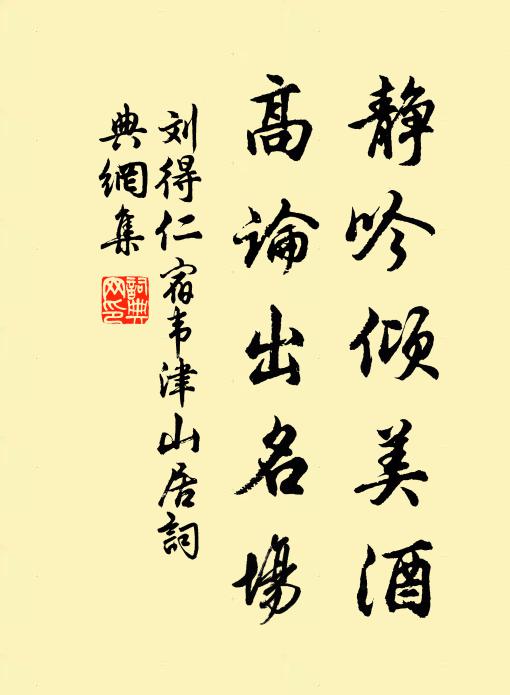 静吟倾美酒
高論出名場
刘得仁宿韦津山居詞
典網集
詞典
网印